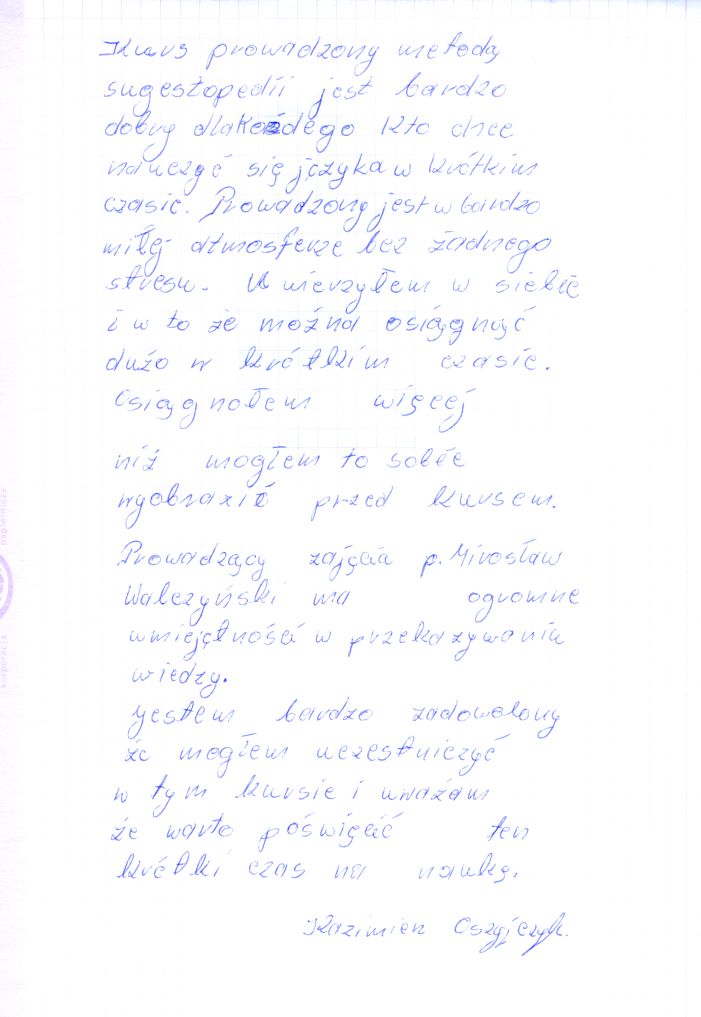 Kurs prowadzony metodą
sugestopedii jest bardzo
dobry dla każdego kto chce
nauczyć się języka w krótkim
czasie. Prowadzony jest w bardzo
miłej atmosferze bez żadnego
stresu. Uwierzyłem w siebie
i w to że można osiągnąć
dużo w krótkim czasie.
Osiągnołem więcej
niż mogłem to sobie
wyobrazić przed kursem.
Prowadzący zajęcia p. Mirosław
Walczyński ma ogromne
umiejętność w przekazywaniu
wiedzy.
Jestem bardzo zadowolony
że mogłem uczestniczyć
w tym kursie i uważam
że warto poświęcić ten
krótki czas na naukę.
Kazimierz
korporacja papiernicza